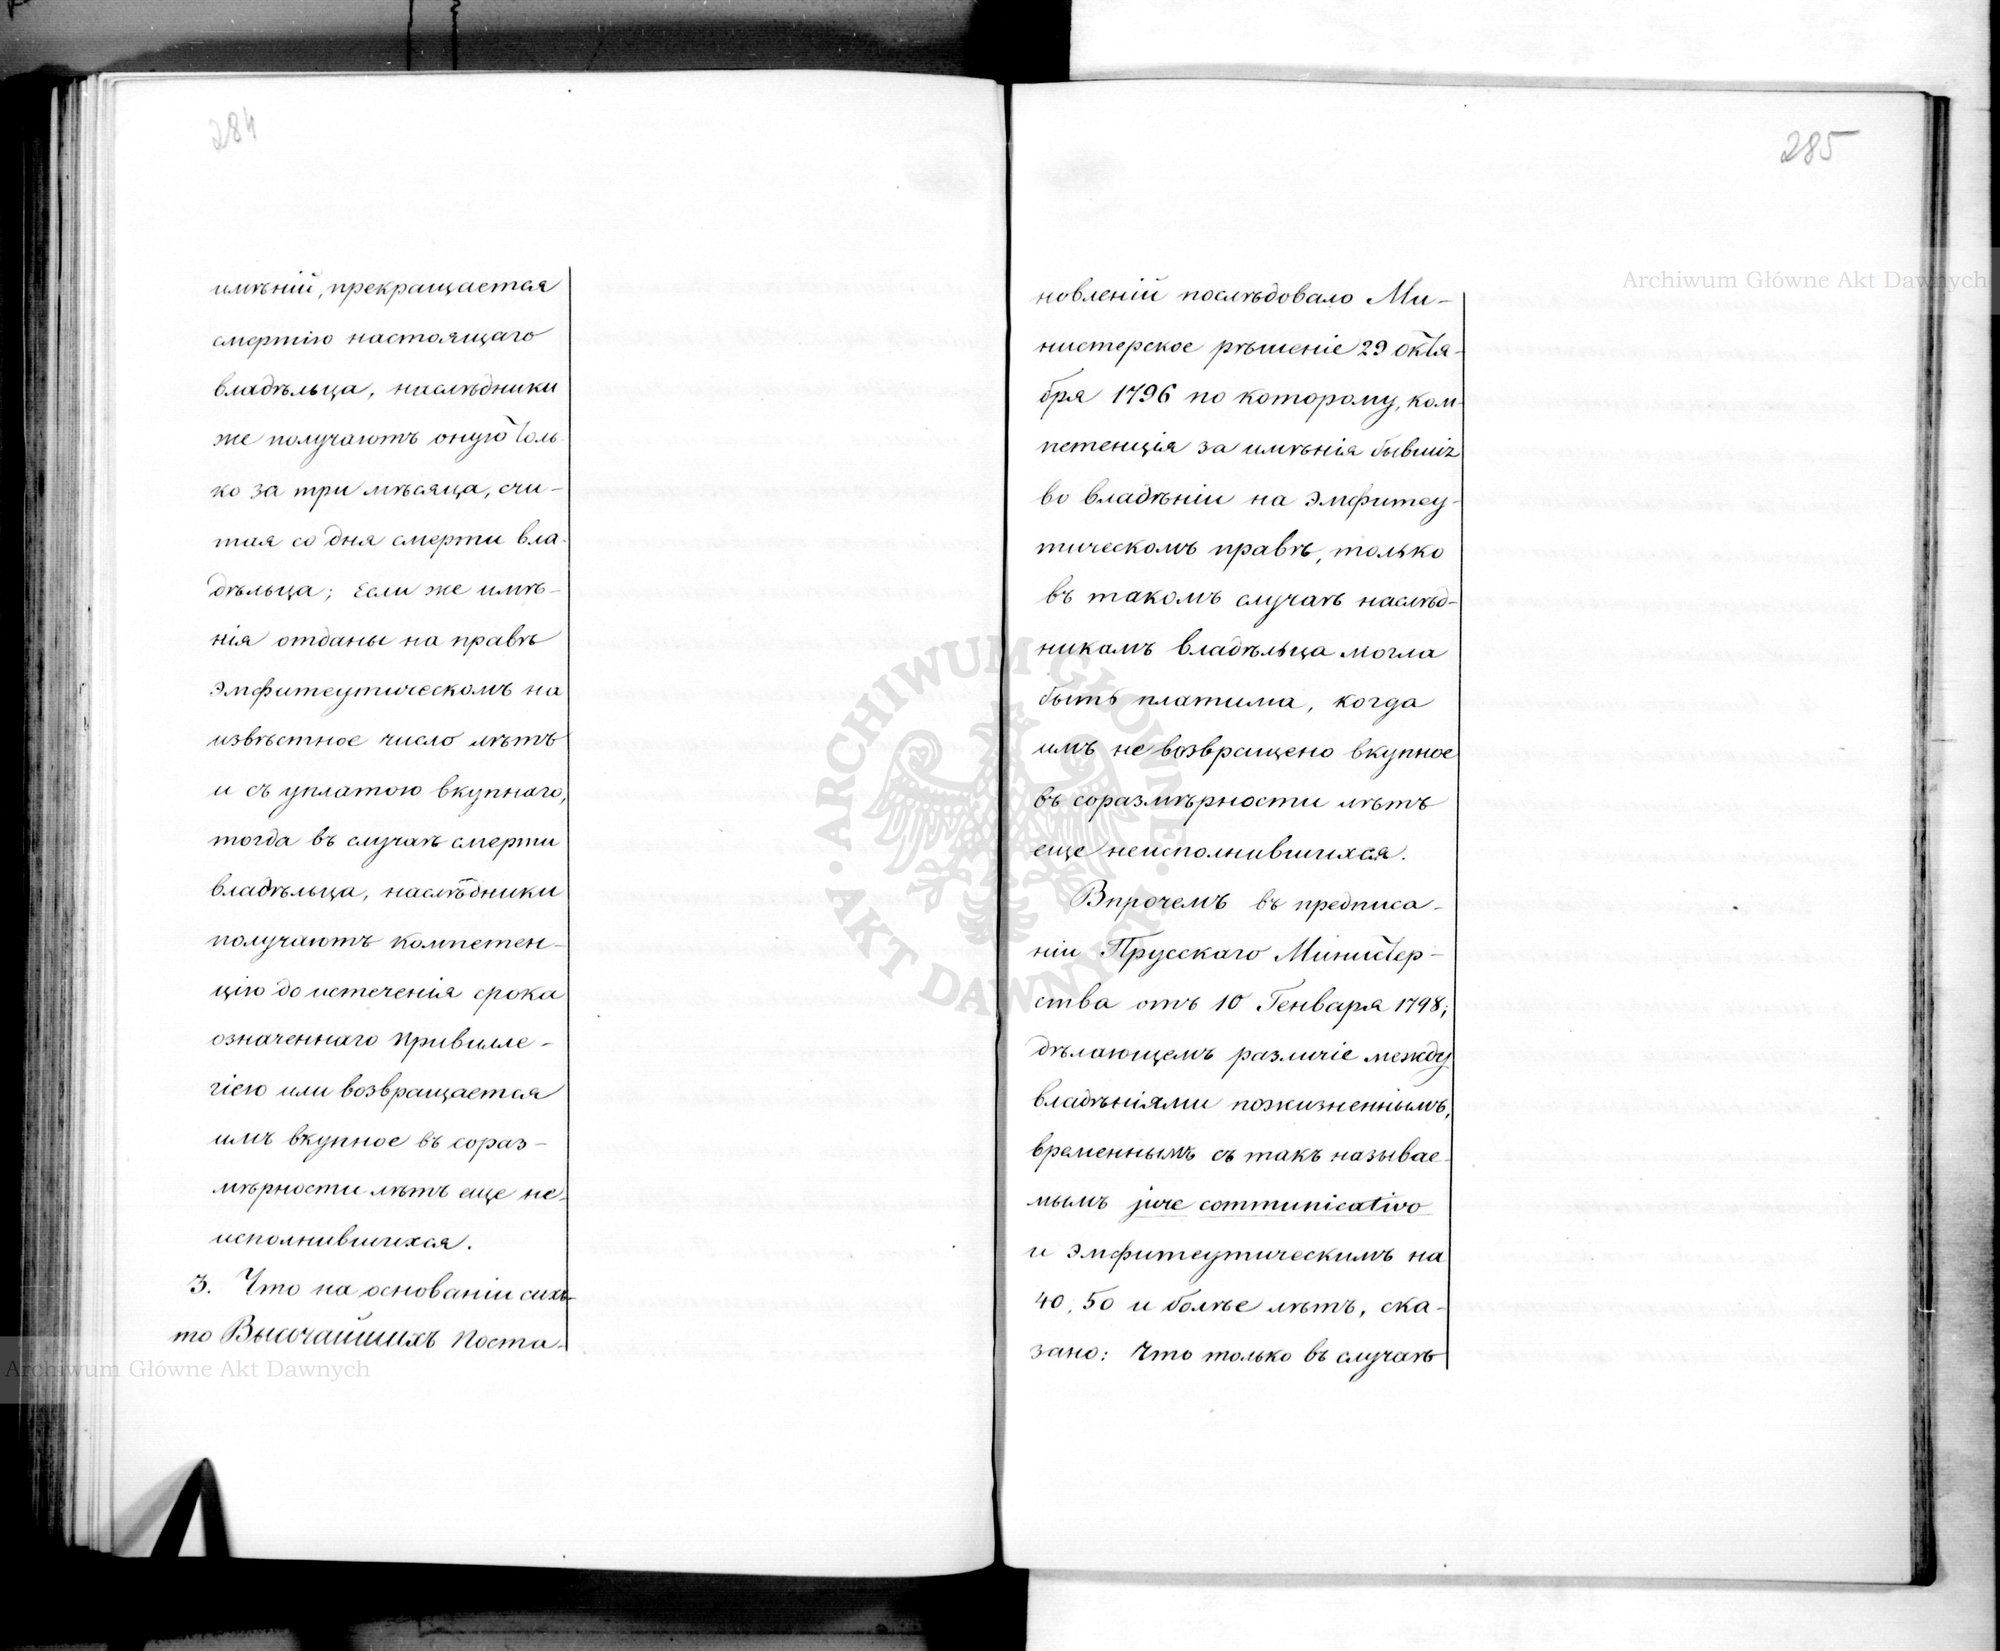 284
имѣній, прекращается
смертію настоящаго
владѣльца, наслѣдники
же получаютъ оную толь-
ко за три мѣсяца, счи-
тая со дня смерти вла-
дѣльца; Если же имѣ-
нія отданы на правѣ
эмфитеутическомъ на
извѣстное число лѣтъ
и съ уплатою вкупнаго,
тогда въ случаѣ смерти
владѣльца, наслѣдники
получаютъ компетен-
цію до истеченія срока
означеннаго Привилле-
гіею или возвращается
имъ вкупное въ сораз-
мѣрности лѣтъ еще не-
исполнившихся.
3. Что на основаніи сихъ-
то Высочайшихъ Поста-
285
новленій послѣдовало Ми-
нистерское рѣшеніе 29 Октя-
бря 1796 по которому, ком-
петенція за имѣнія бывшія
во владѣніи на эмфитеу-
тическомъ правѣ, только
въ такомъ случаѣ наслѣд-
никамъ владѣльца могла
быть платима, когда
имъ не возвращено вкупное
въ соразмѣрности лѣтъ
еще неисполнившихся.
Впрочемъ въ предписа-
ніи Прусскаго Министер-
ства отъ 10 Генваря 1798;
дѣлающемъ различіе между
владѣніями пожизненнымъ,
временнымъ съ такъ называе-
мымъ jure communicativo
и эмфитеутическимъ на
40, 50 и болѣе лѣтъ, ска-
зано: Что только въ случаѣ
Archiwum Główne Akt Dawnych
Archiwum Główne Akt Dawnych
ARCHIWUM GŁÓWNE AKT DAWNYCH